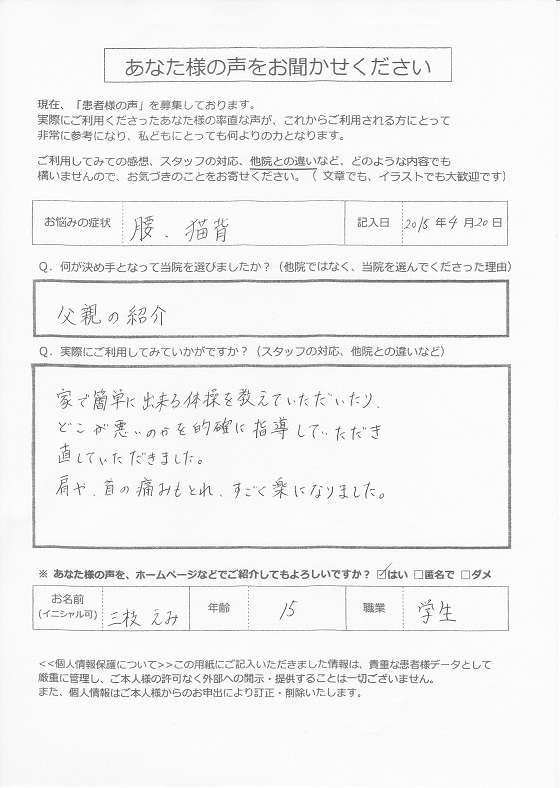 あなた様の声をお聞かせください
現在、「患者様の声」を募集しております。
実際にご利用くださったあなた様の率直な声が、これからご利用される方にとって
非常に参考になり、私どもにとっても何よりの力となります。
ご利用してみての感想、スタッフの対応、他院との違いなど、どのような内容でも
構いませんので、お気づきのことをお寄せください。（ 文章でも、イラストでも大歓迎です）
お悩みの症状 腰、猫背 記入日 2015年4月20日
Q．何が決め手となって当院を選びましたか？（他院ではなく、当院を選んでくださった理由）
父親の紹介
Q．実際にご利用してみていかがですか？（スタッフの対応、他院との違いなど）
家で簡単に出来る体操を教えていただいたり、
どこが悪いのかを的確に指導していただき
直していただきました。
肩や、首の痛みもとれ、すごく楽になりました。
※ あなた様の声を、ホームページなどでご紹介してもよろしいですか？ ☑はい □匿名で □ダメ
お名前 (イニシャル可) 三枝 えみ 年齢 15 職業 学生
<<個人情報保護について>>この用紙にご記入いただきました情報は、貴重な患者様データとして
厳重に管理し、ご本人様の許可なく外部への開示・提供することは一切ございません。
また、個人情報はご本人様からのお申出により訂正・削除いたします。